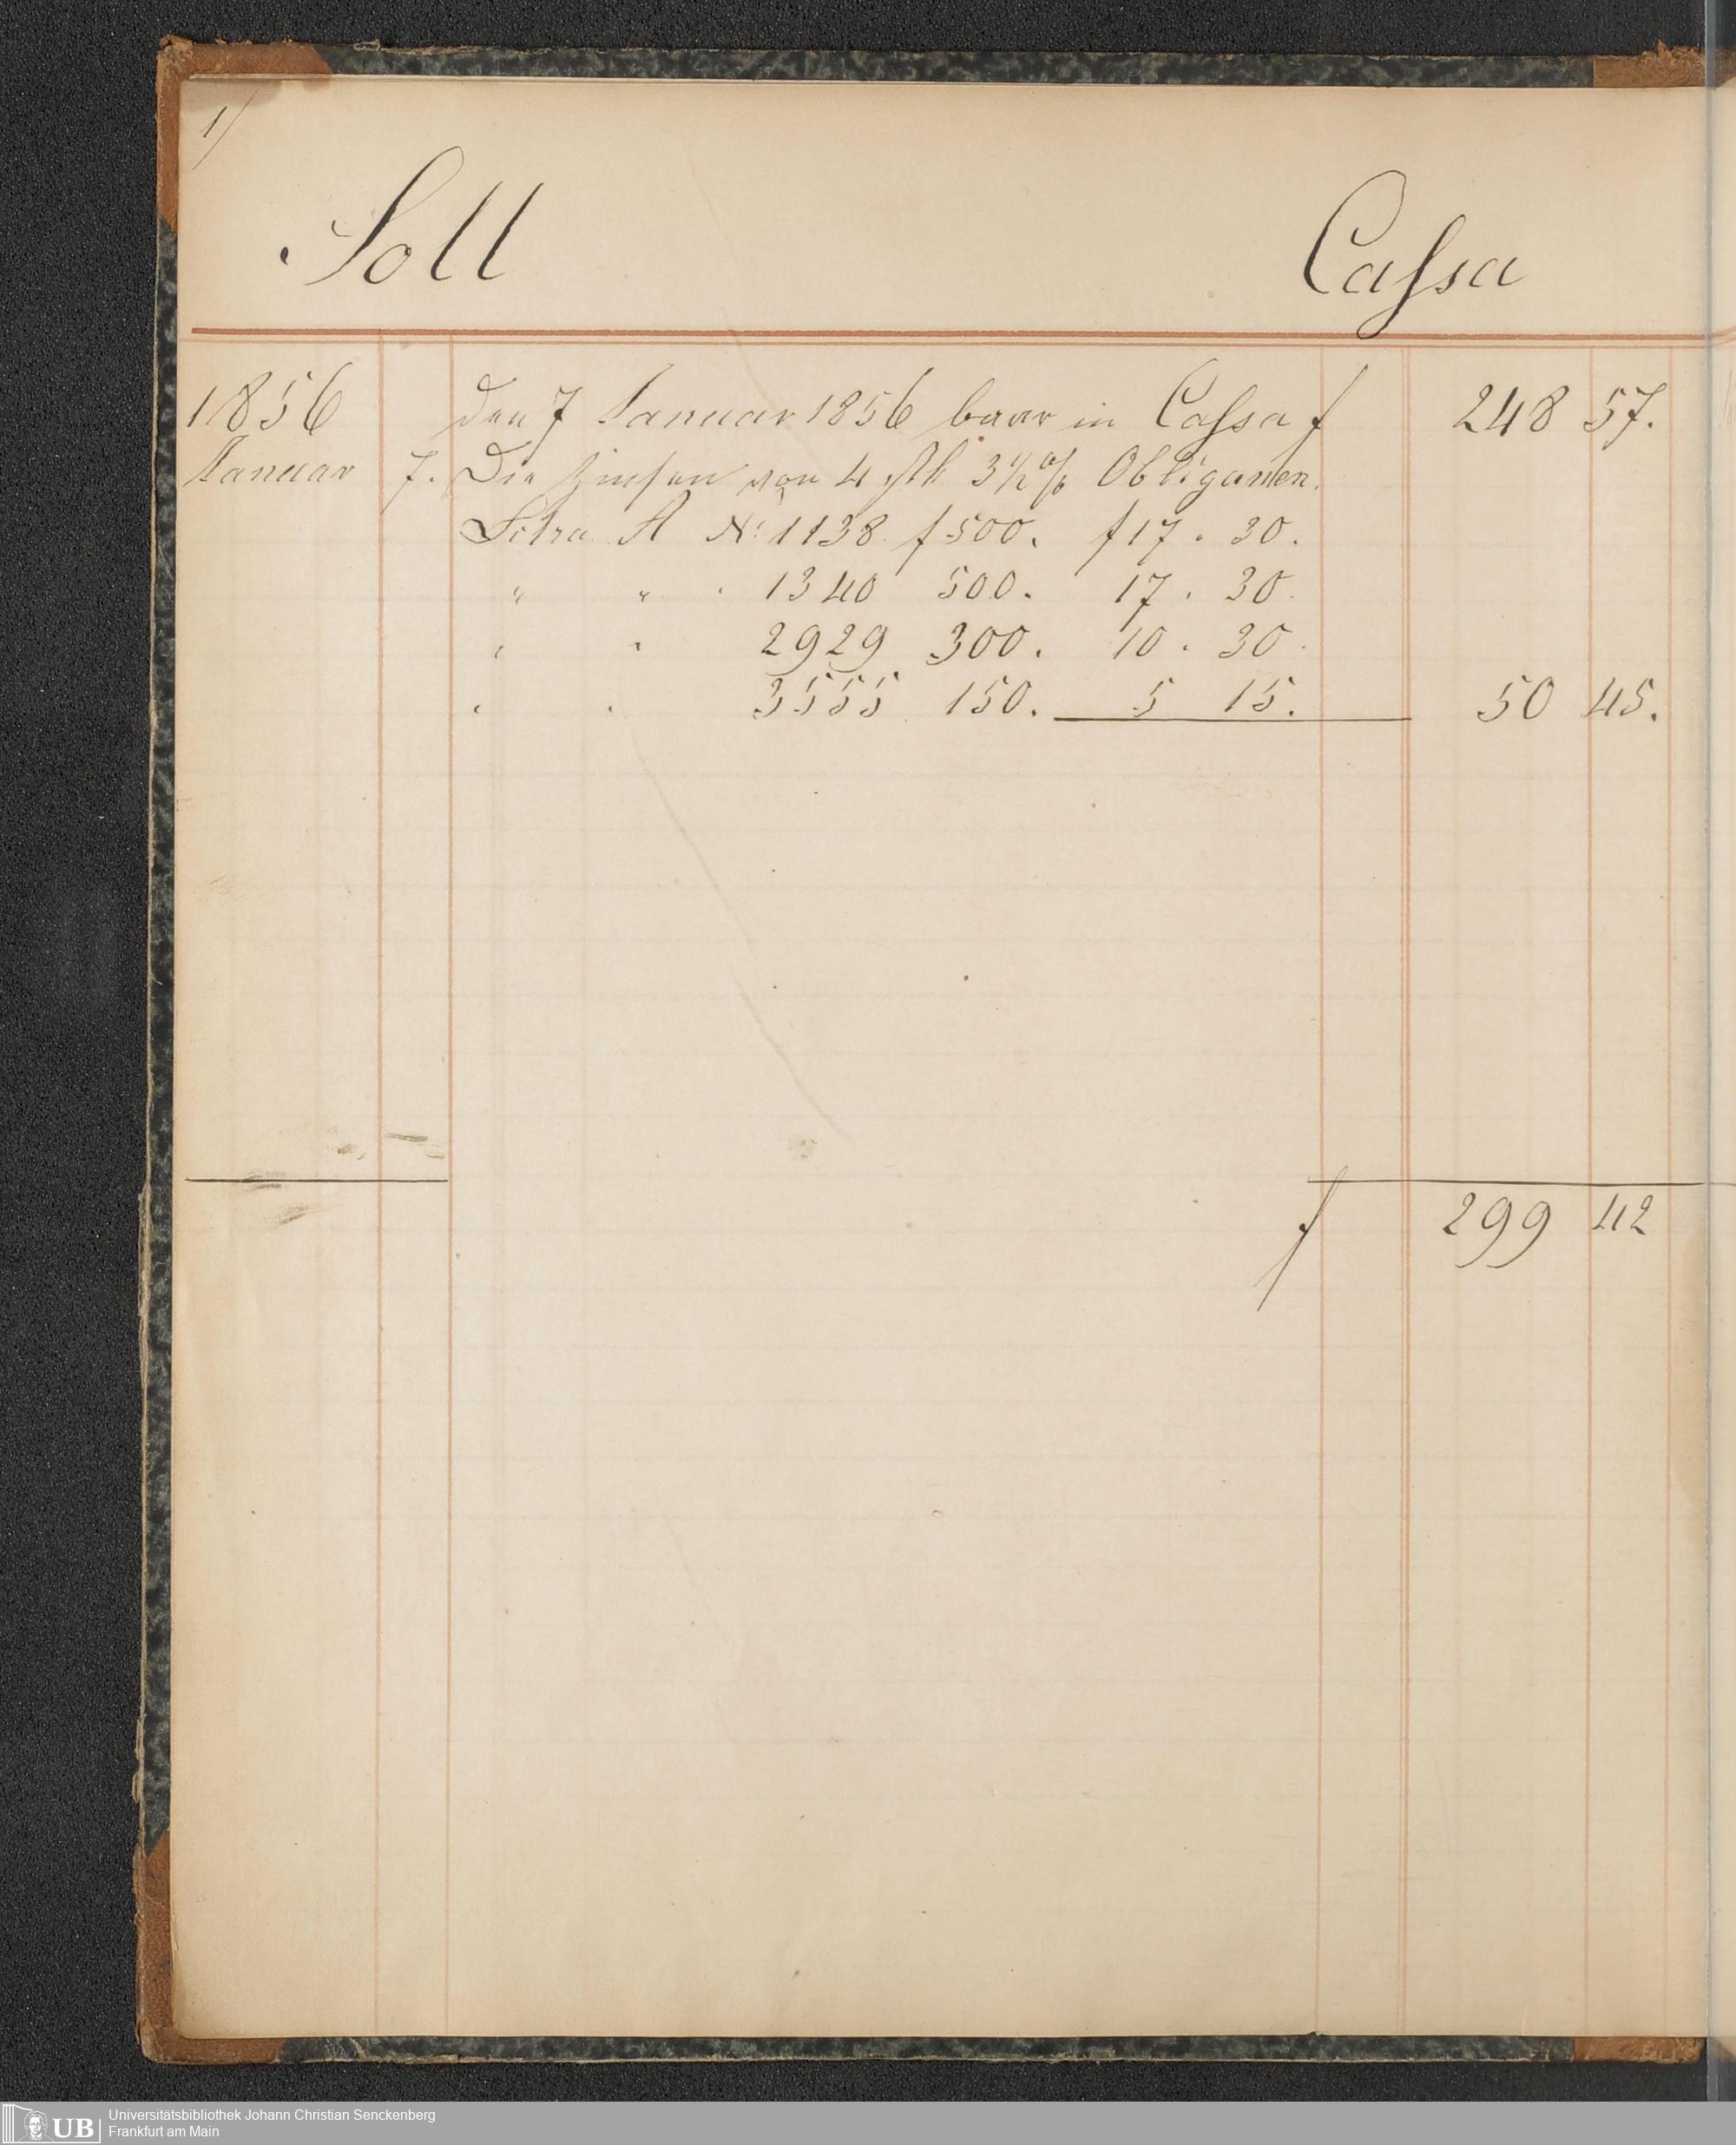 1)
Soll Cassa
1856 den 7 Januar 1856 baar in Cassa f 248 57.
Januar 7. Die Zinsen von 4 stk 3½ % Obligaonen.
Litra A No 1138 f 500. f 17. 30.
" " 1340 500. 17. 30.
" " 2929 300. 10. 30.
" " 3555 150. 5 15. 50 45.
f 299 42
UB Universitätsbibliothek Johann Christian Senckenberg
Frankfurt am Main